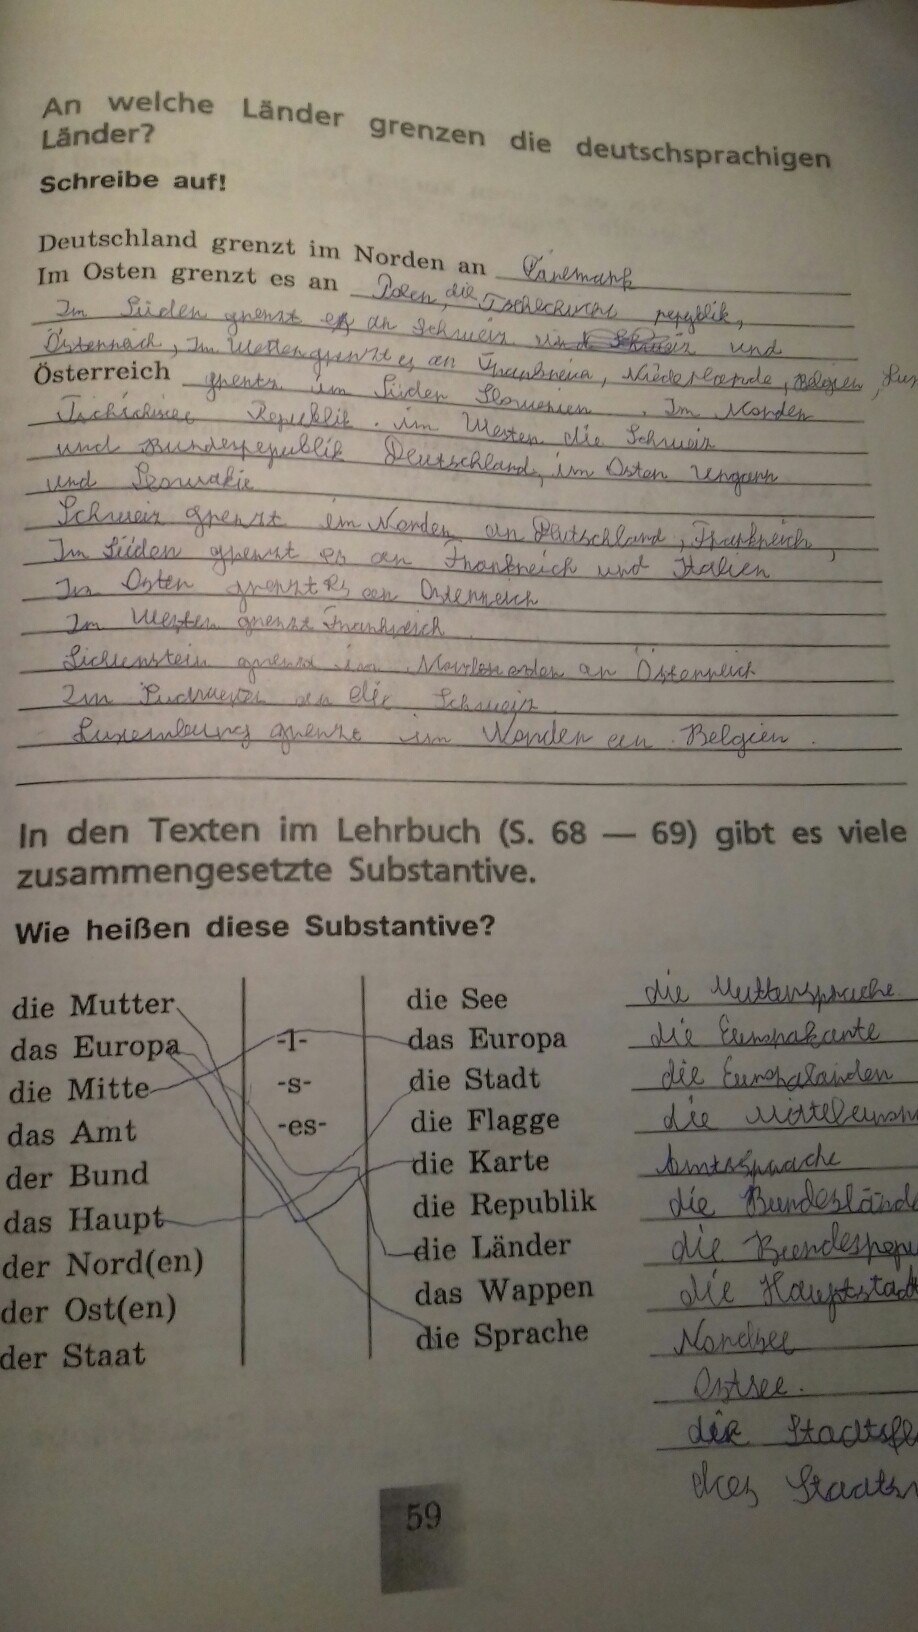 An welche Länder grenzen die deutschsprachigen
Länder?
Schreibe auf!
Deutschland grenzt im Norden an Dänemark
Im Osten grenzt es an Polen, die Tschechische republik,
Im Süden grenzt es an Schweiz und
Österreich, Im Westen grenzt es an Frankreich, Niederlande, Belgien,
Österreich grentz im Süden Slowenien. Im Norden
Tschichisce Republik. im Westen die Schweiz
und Bundesrepublik Deutschland, im Osten Ungarn
und Slowakie
Schweiz grenzt im Norden an Deutschland, Frankreich,
Im Süden grenzt es an Frankreich und Italien
Im Osten grenzt es an Österreich
Im Westen grenzt Frankreich
Lichenstein grenzt im an Österreich
Im Südwesten an die Schweiz
Luxemburg grenzt im Norden an Belgien.
In den Texten im Lehrbuch (S. 68 — 69) gibt es viele
zusammengesetzte Substantive.
Wie heißen diese Substantive?
die Mutter die See die Muttersprache
das Europa -l- das Europa die Europakarte
die Mitte -s- die Stadt die Europaländen
das Amt -es- die Flagge die
der Bund die Karte Amtssprache
das Haupt die Republik die
der Nord(en) die Länder die
der Ost(en) das Wappen die Hauptstadt
der Staat die Sprache Nordsee
Ostsee.
die
das
59